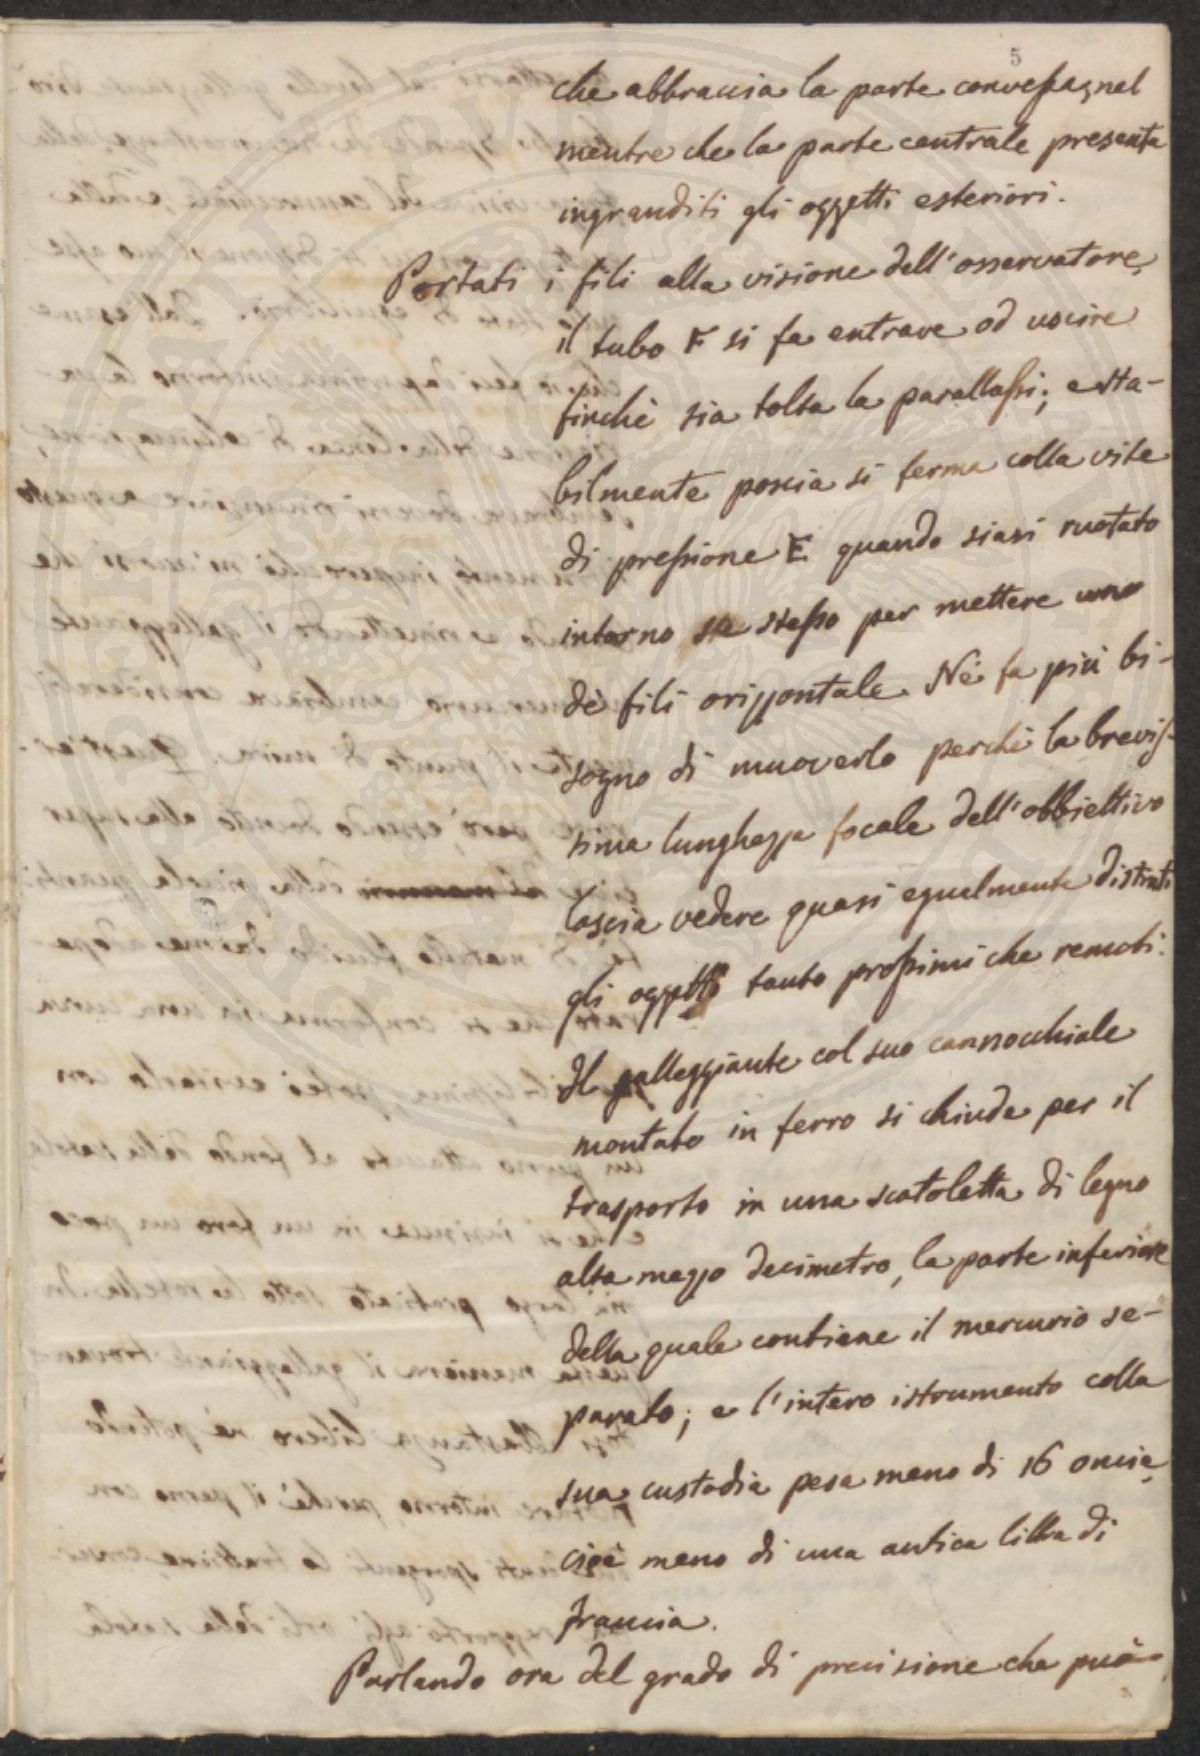 5
che abbraccia la parte convessa, nel
mentre che la parte centrale presenta
ingranditi gli oggetti esteriori.
Portati i fili alla visione dell'osservatore,
il tubo F si fa entrare od uscire
finchè sia tolta la parallassi; e sta-
bilmente poscia si ferma colla vite
di pressione E quando siasi ruotato
intorno se stesso per mettere uno
dè fili orizzontale. Nè fa più bi-
sogno di muoverlo perchè la brevis-
sima lunghezza focale dell'obbiettivo
lascia vedere quasi egualmente distinti
gli oggetti tanto prossimi che remoti.
Il galleggiante col suo cannocchiale
montato in ferro si chiude per il
trasporto in una scatoletta di legno
alta mezzo decimetro, la parte inferiore
della quale contiene il mercurio se-
parato; e l'intero istrumento colla
sua custodia pesa meno di 16 oncie,
cioè meno di una antica libbra di
francia.
Parlando ora del grado di precisione che può